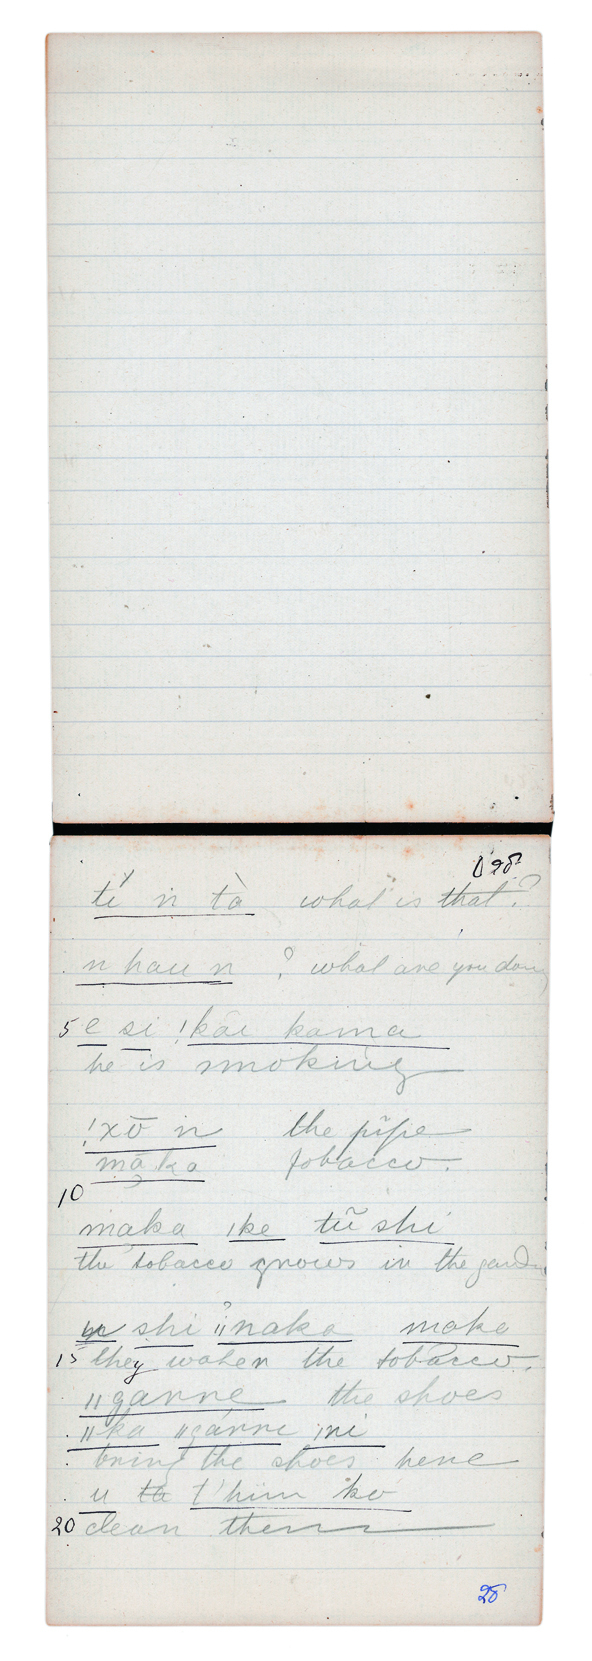 tí n tà what is that?
n hau n ? what are you doing
5 e si !kái kama
he is smoking
!xō n the pipe
māka tobacco.
10
maka ıke tũ shi
the tobacco grows in the garden
shi ǁnaka maka
15 they water the tobacco.
ǁganne the shoes
ǁka ǁgánni ıni
bring the shoes here
u t'him ko
20 clean them
28